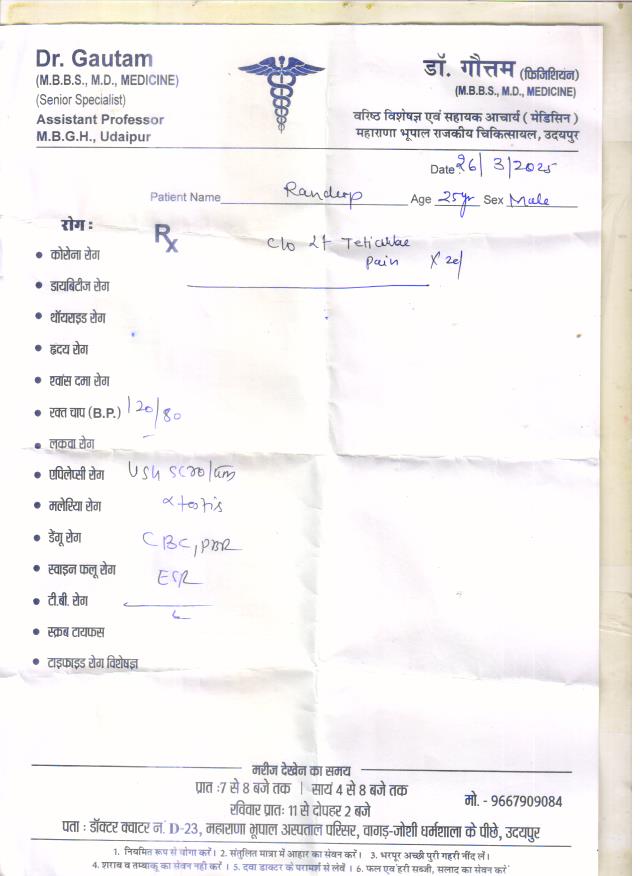 Dr. Gautam
(M.B.B.S., M.D., MEDICINE)
(Senior Specialist)
Assistant Professor
M.B.G.H., Udaipur
डॉ. गौत्तम (फिजिशियन)
(M.B.B.S., M.D., MEDICINE)
वरिष्ठ विशेषज्ञ एवं सहायक आचार्य ( मेडिसिन )
महाराणा भूपाल राजकीय चिकित्सायल, उदयपुर
Date 26/3/2025
Patient Name Randeep Age 25yr Sex Male
रोग :
Rx
C/o Lt Testicular
Pain
• कोरोना रोग
• डायबिटीज रोग
• थॉयराइड रोग
• हृदय रोग
• श्वांस दमा रोग
• रक्त चाप (B.P.) 120/80
• लकवा रोग
• एपिलेप्सी रोग USG Scrotum
• मलेरिया रोग testis
• डेंगू रोग CBC, PBF
• स्वाइन फलू रोग ESR
• टी.बी. रोग
• स्क्रब टायफस
• टाइफाइड रोग विशेषज्ञ
मरीज देखेन का समय
प्रात :7 से 8 बजे तक । सायं 4 से 8 बजे तक
रविवार प्रातः 11 से दोपहर 2 बजे
मो. - 9667909084
पता : डॉक्टर क्वाटर नं. D-23, महाराणा भूपाल अस्पताल परिसर, वागड़-जोशी धर्मशाला के पीछे, उदयपुर
1. नियमित रूप से योगा करें। 2. संतुलित मात्रा में आहार का सेवन करें। 3. भरपूर अच्छी पुरी गहरी नींद लें।
4. शराब व तम्बाकू का सेवन नही करें । 5. दवा डाक्टर के परामर्श से लेवें । 6. फल एवं हरी सब्जी, सलाद का सेवन करें